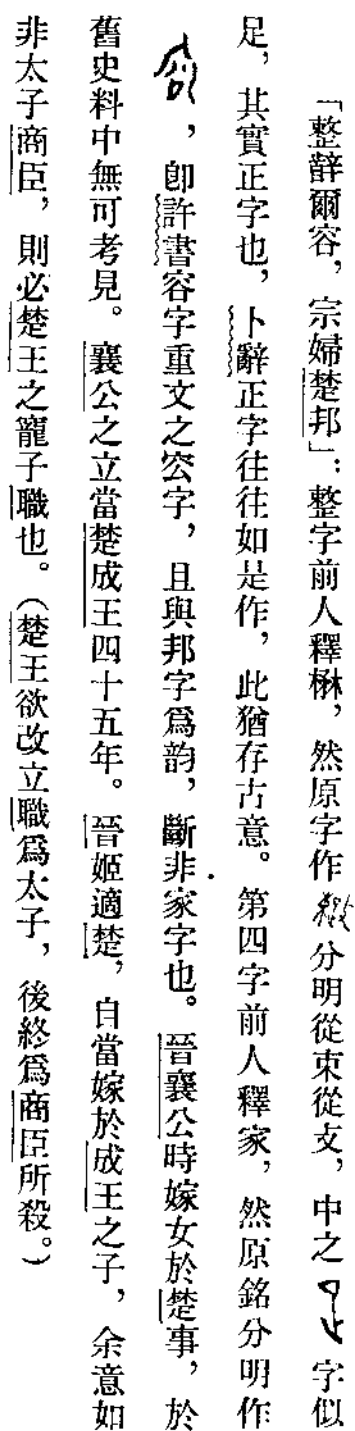 「整辥爾容，宗婦楚邦」：整字前人釋楙，然原字作分明從束從攴，中之字似
足，其實正字也，卜辭正字往往如是作，此猶存古意。第四字前人釋家，然原銘分明作
，卽許書容字重文之㝐字，且與邦字爲韵，斷非家字也。晉襄公時嫁女於楚事，於
舊史料中無可考見。襄公之立當楚成王四十五年。晉姬適楚，自當嫁於成王之子，余意如
非太子商臣，則必楚王之寵子職也。（楚王欲改立職爲太子，後終爲商臣所殺。）